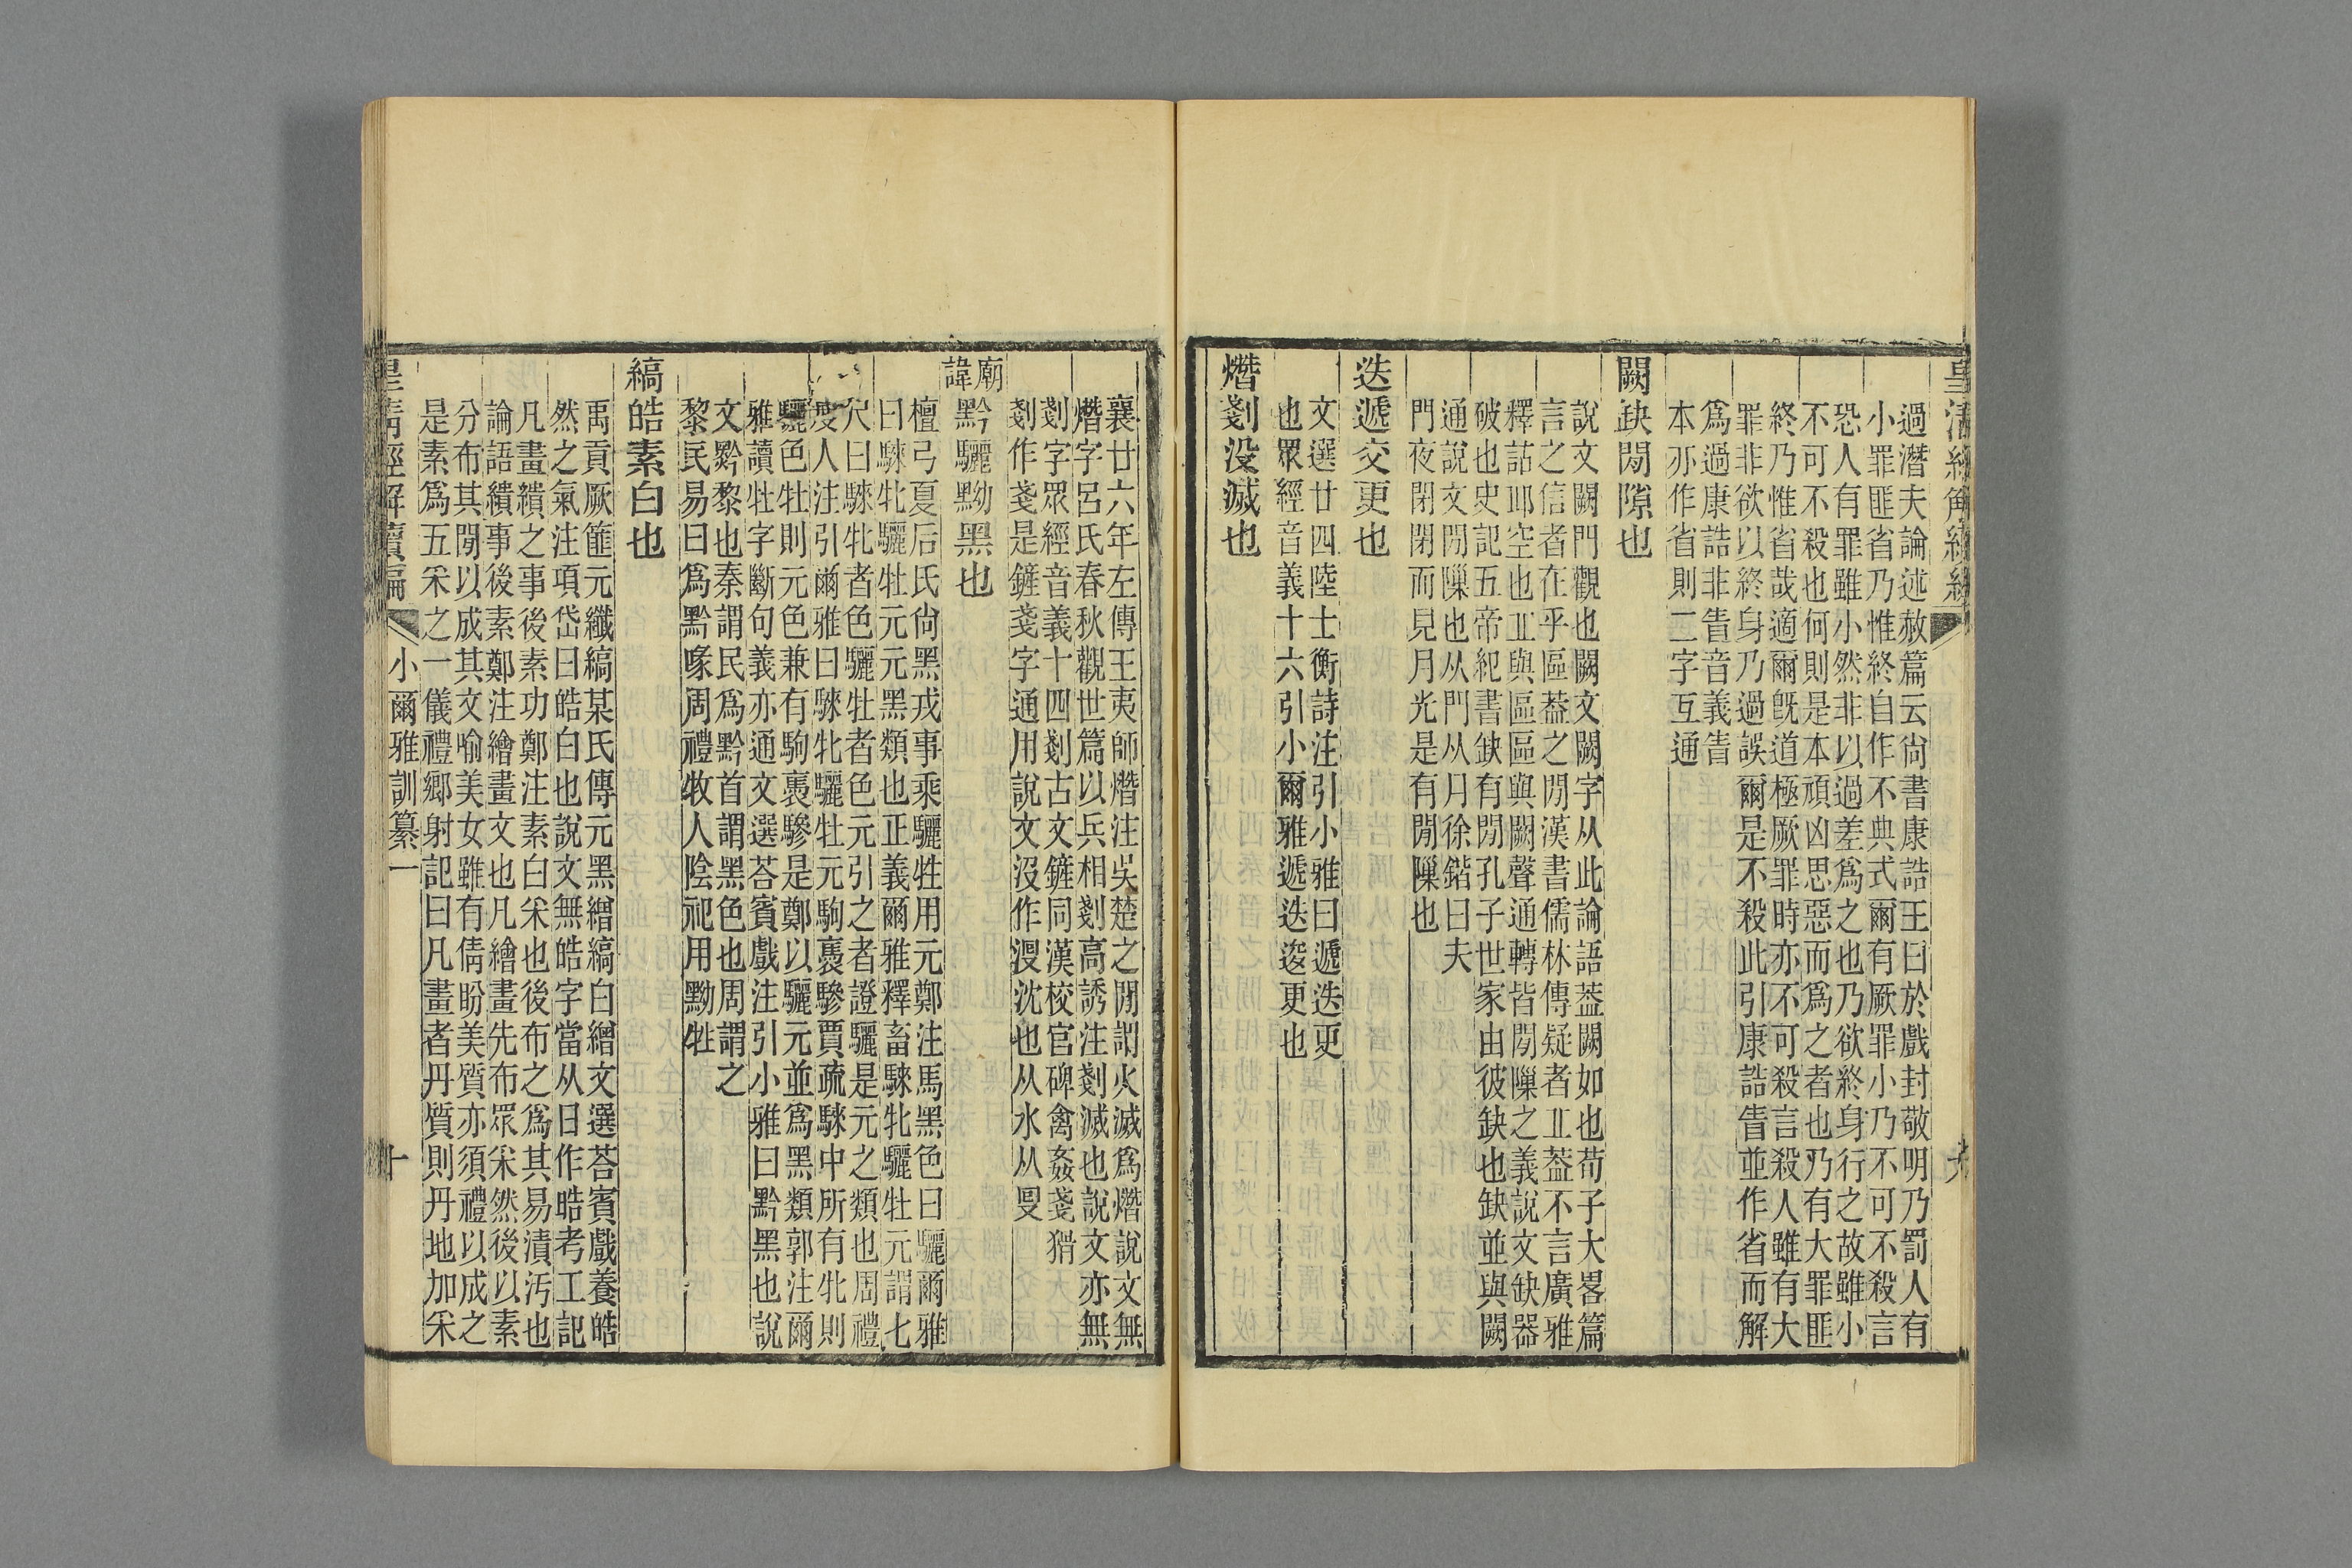 皇清經解續編
過潛夫論述赦篇云尙書康誥王曰於戲封敬明乃罰人有
小罪匪省乃惟終自作不典式爾有厥罪小乃不可不殺言
恐人有罪雖小然非以過差爲之也乃欲終身行之故雖小
不可不殺也何則是本頑凶思惡而爲之者也乃有大罪匪
終乃惟省哉適爾旣道極厥罪時亦不可殺言殺人雖有大
罪非欲以終身乃過誤爾是不殺此引康誥眚並作省而解
爲過康誥非眚音義眚
本亦作省則二字互通
闕缺閒隙也
說文闕門觀也闕文闕字从此論語葢闕如也荀子大畧篇
言之信者在乎區葢之閒漢書儒林傳疑者丘葢不言廣雅
釋詁邱空也丘與區區與闕聲通轉皆閒隟之義說文缺器
破也史記五帝紀書缺有閒孔子世家由彼缺也缺並與闕
通說文閒隟也从門从月徐鍇曰夫
門夜閉閉而見月光是有閒隟也
迭遞交更也
文選廿四陸士衡詩注引小雅曰遞迭更
也眾經音義十六引小爾雅遞迭逡更也
熸剗没滅也
九
襄廿六年左傳王夷師熸注吳楚之閒謂火滅爲熸說文無
熸字呂氏春秋觀世篇以兵相剗高誘注剗滅也說文亦無
剗字眾經音義十四剗古文鏟同漢校官碑禽姦戔猾
剗作戔是鏟戔字通用說文沒作溲沈也从水从𠬛
廟諱黔驪黝黑也
檀弓夏后氏尙黑戎事乘驪牲用元鄭注馬黑色曰驪爾雅
曰騋牝驪牡元元黑類也正義爾雅釋畜騋牝驪牡元謂七
尺曰騋牝者色驪牡者色元引之者證驪是元之類也周禮
廋人注引爾雅曰騋牝驪牡元駒褭驂賈疏騋中所有牝則
驪色牡則元色兼有駒褭驂是鄭以驪元並爲黑類郭注爾
雅讀牡字斷句義亦通文選荅賓戲注引小雅曰黔黑也說
文黔黎也秦謂民爲黔首謂黑色也周謂之
黎民易曰爲黔喙周禮牧人陰祀用黝牲
縞皓素白也
禹貢厥篚元纖縞某氏傳元黑繒縞白繒文選荅賓戲養皓
然之氣注項岱曰皓白也說文無皓字當从日作晧考工記
凡畫繢之事後素功鄭注素白采也後布之爲其易漬汚也
論語繢事後素鄭注繪畫文也凡繪畫先布眾采然後以素
分布其閒以成其文喻美女雖有倩盼美質亦須禮以成之
是素爲五采之一儀禮鄉射記曰凡畫者丹質則丹地加采
皇淸經解續編
小爾雅訓纂一
十